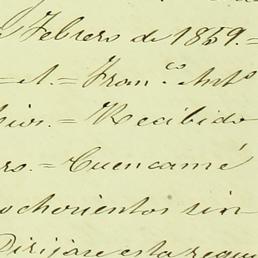 Febrero de 1859.=
=A.= Fran.co Anto
=Recibido
ro.= Cuencamé
ochocientos sin
Dirijase esta requi